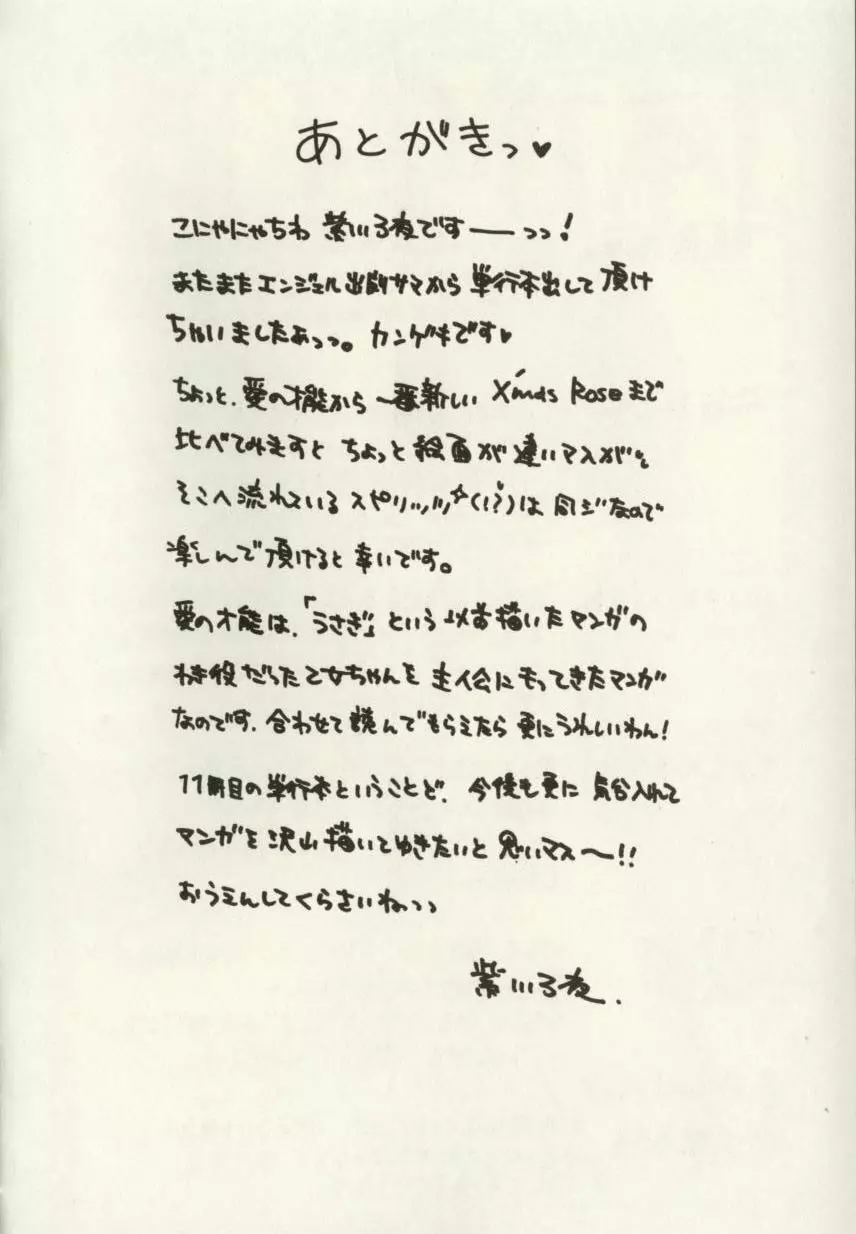 あとがきっ♥
こにゃにゃちわ 紫川弓夜ですーーっっ！
またまたエンジェル出版サマから 単行本出して頂け
ちゃいましたぁっっ。カンゲキです♥
ちょっと、愛の才能から 一番新しい X'mas Roseまで
比べてみますと ちょっと絵面が違いマスが
そこへ流れている スピリッッツ☆(!?)は 同ジなので
楽しんで頂けると 幸いです。
愛の才能は、「うさぎ」という以前描いたマンガの
わき役だった乙女ちゃんを 主人公にもってきたマンガ
なのです。合わせて読んでもらえたら 更にうれしいわん！
11冊目の単行本ということで、今後も更に 気合入れて
マンガを沢山描いてゆきたいと 思いマス〜!!
おうえんしてくらさいねっっ
紫川弓夜.